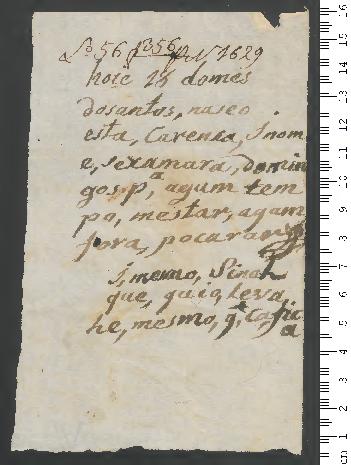 Nº 56 f 356 Nº 1629
hoie 16 domes
dosantos, naseo
esta, Carenca, s nom
e, sexamara, domin
gos pª, agum tem
po, mestar, agam
fora, pocaran
s, memo, Sinal
que, quio, leva
he, mesmo, q, Cafic
a